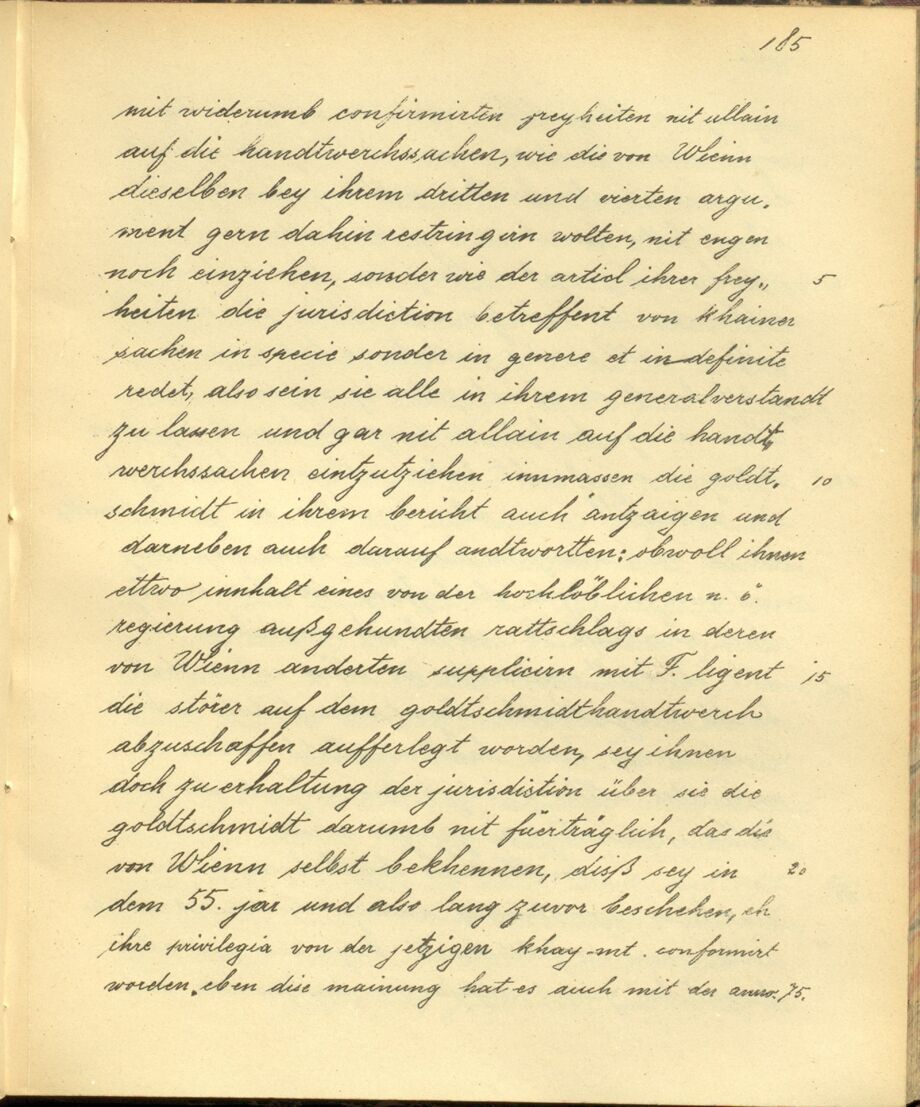 185
mit widerumb confirmirten freyheiten nit allain
auf die handtwerchssachen, wie die von Wienn
dieselben bey ihrem dritten und vierten argu„
ment gern dahin restringirn wolten, nit engen
noch einziehen, sonder wie der articl ihrer frey„ 5
heiten die jurisdiction betreffent von khainer
sachen in specie sonder in genere et indefinite
redet, also sein sie alle in ihrem generalverstandt
zu lassen und gar nit allain auf die handt„
werchssachen eintzutziehen innmassen die goldt„ 10
schmidt in ihrem bericht auch antzaigen und
darneben auch darauf andtwortten: obwoll ihnen
ettwo innhalt eines von der hochlöblichen n. ö.
regierung außgehundten rattschlags in deren
von Wienn anderten supplicirn mit F. ligent 15
die störer auf dem goldtschmidthandtwerch
abzuschaffen aufferlegt worden, sey ihnen
doch zu erhaltung der jurisdiction über sie die
goldtschmidt darumb nit füerträglich, das die
von Wienn selbst bekhennen, diß sey in 20
dem 55. jar und also lang zuvor beschehen, eh
ihre privilegia von der jetzigen khay. mt. conformirt
worden. eben dise mainung hat es auch mit der anno. 75.